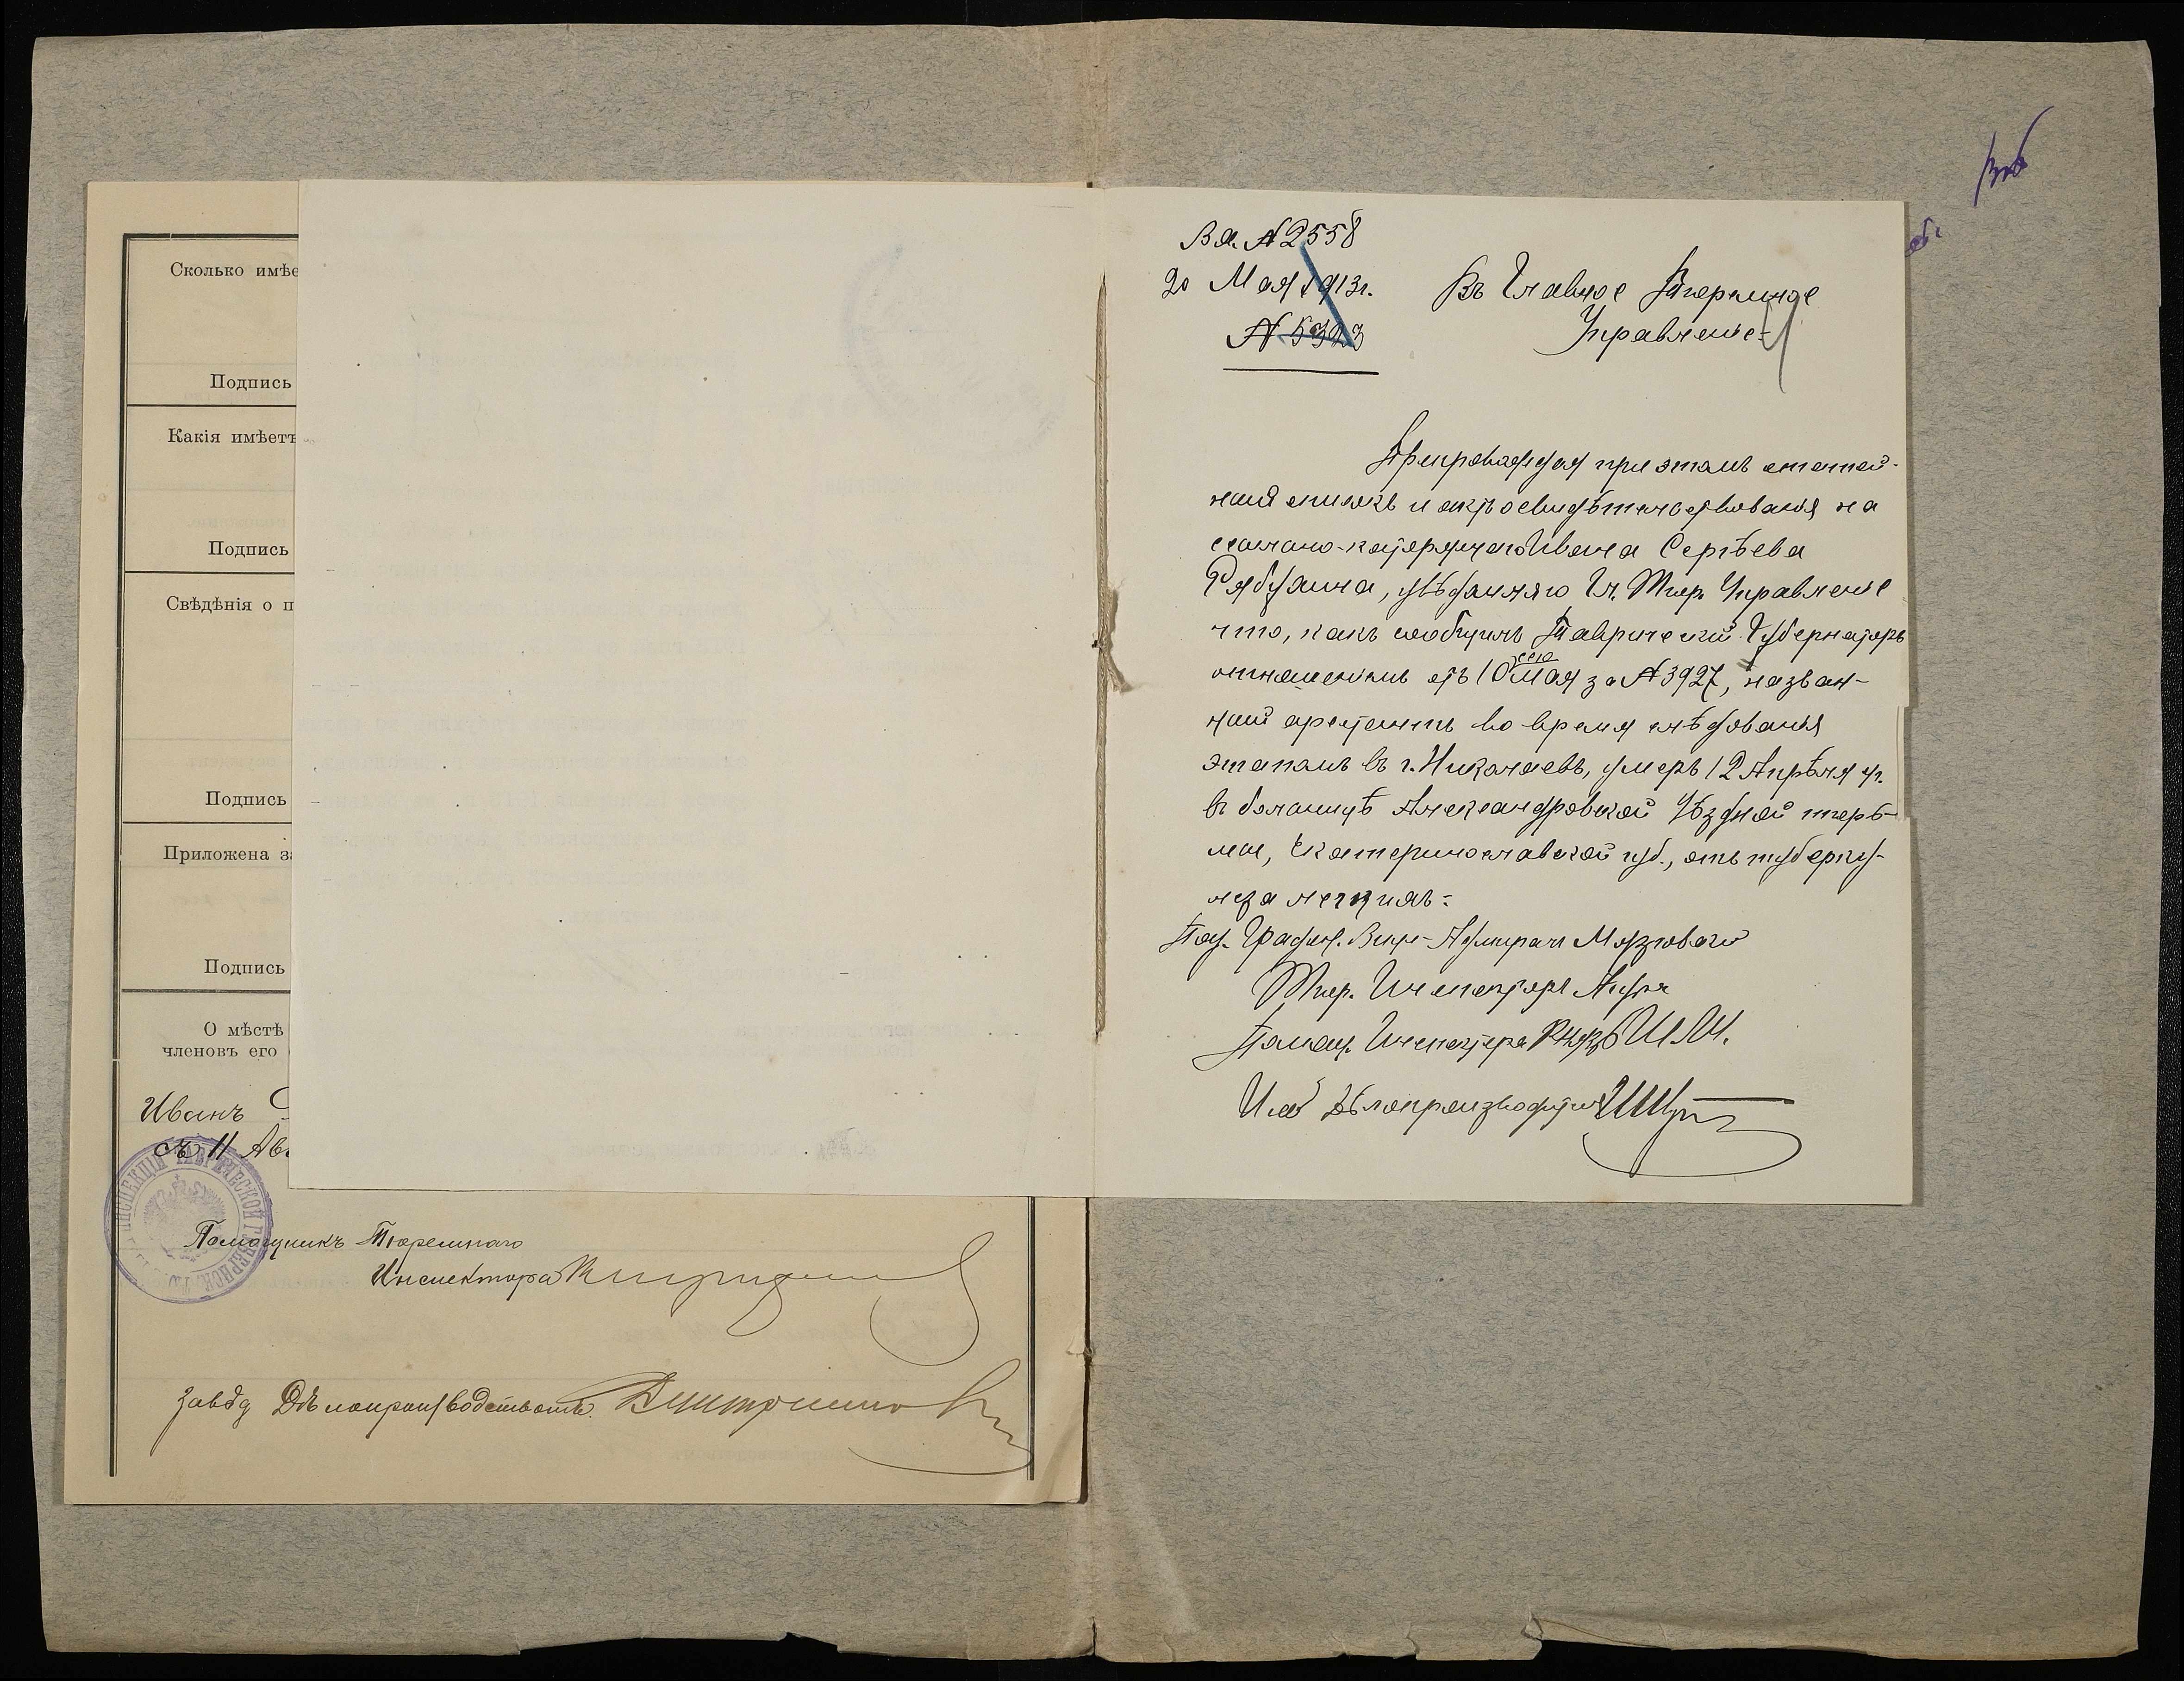 Сколько имѣе
Подпись
Какія имѣетъ
Подпись
Свѣдѣнія о п
Подпись
Приложена з
Подпись
О мѣстѣ
членовъ его
Иванъ С
съ 11 Ав
Помощникъ Тюремнаго
Инспектора
Завѣд Дѣлопроизводствомъ
Вх. № 2558
20 Мая 1913 г.
№ 5323
Въ Главное Тюремное
Управленіе
Препровождая при этомъ статей-
ный списокъ и актъ освидѣтельствованія на
ссыльно-каторжнаго Ивана Сергѣева
Рябухина, увѣдомляю Гл. Тюр. Управленіе
что, какъ сообщилъ Таврическій Губернаторъ
отношеніемъ отъ 10 сего Мая за № 3927, назван-
ный арестантъ во время слѣдованія
этапомъ въ г. Николаевъ, умеръ 12 Апрѣля с.г.
въ больницѣ Александровской Уѣздной тюрь-
мы, Екатеринославской губ., отъ туберку-
леза легкихъ.
Под. Градон. Вице-Адмиралъ Мязговскій
Тюр. Инспекторъ
Помощ. Инспектора
И об Дѣлопроизводителя